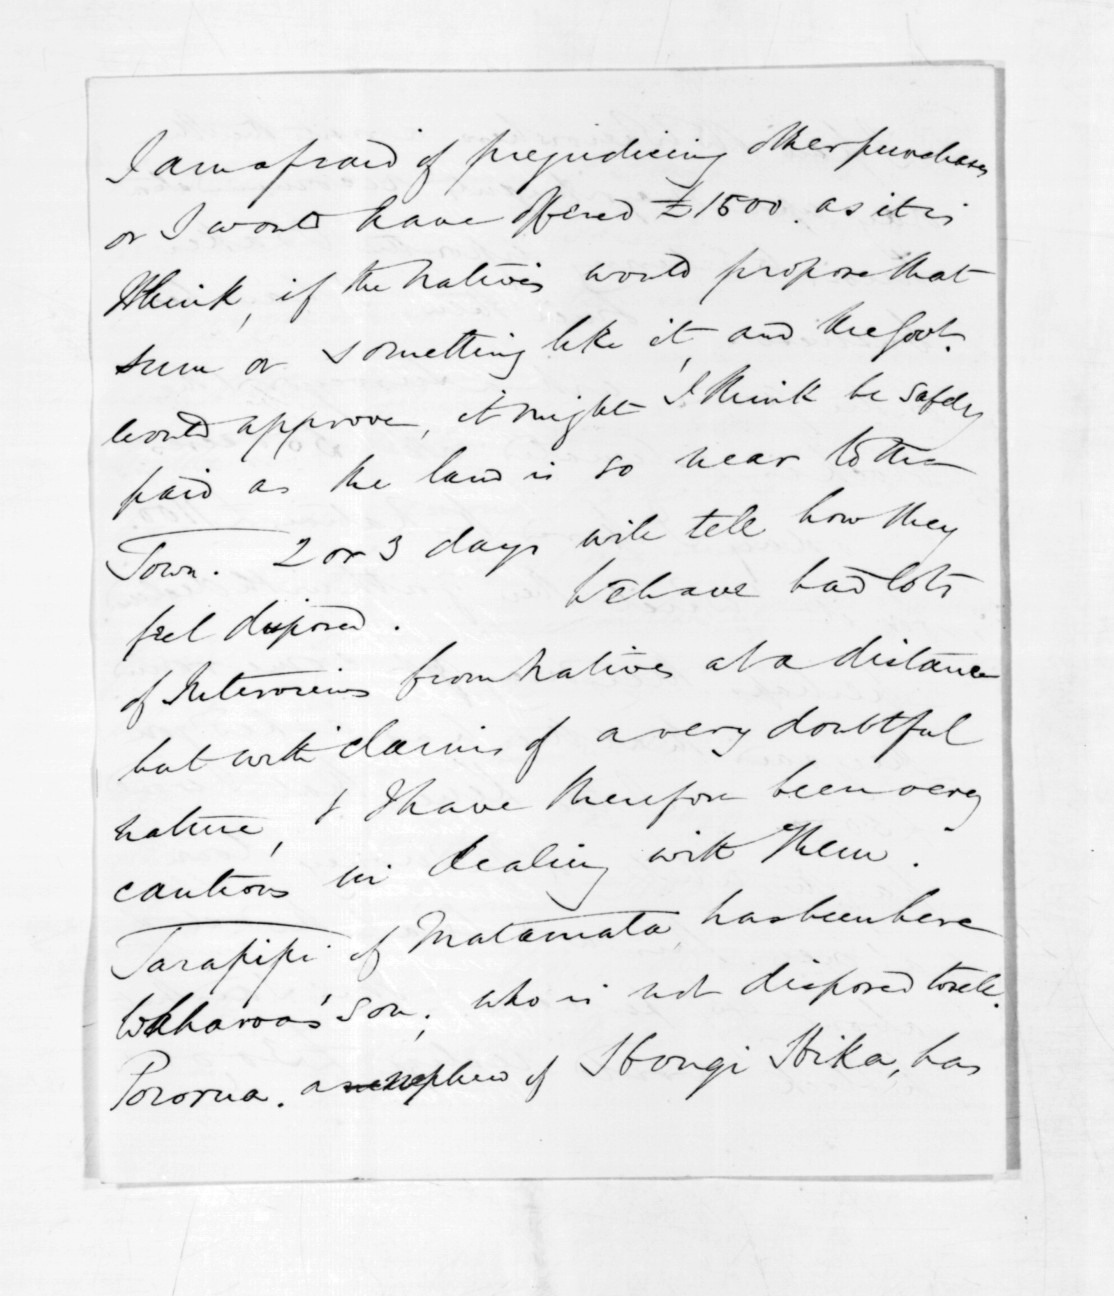 I am afraid of prejudicing other purchases
or I would have offered £1500. as it is
I think, if the Natives would propose that
sum or something like it, and the Govt.
would approve, it might I think be safely
paid as the land is so near to the
Town. 2 or 3 days will tell how they
feel disposed. We have had lots
of Interviews from Natives at a distance
but with claims of a very doubtful
nature, & I have therefore been very
cautious in dealing with them.
Tarapipi of Matamata, has been here
Waharoa's son, who is not disposed to sell.
Pororua. a nephew of Hongi Hika, has